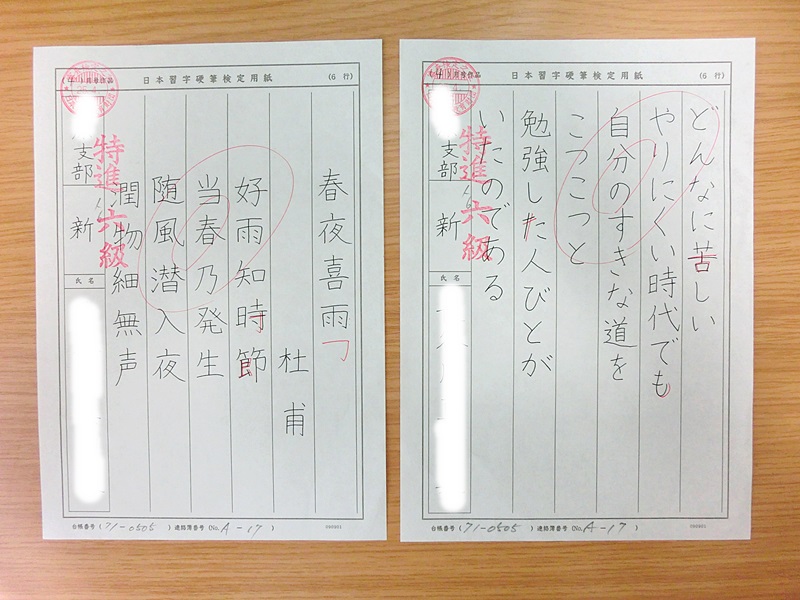 日本習字硬筆検定用紙
(6 行)
春夜喜雨
杜甫
好雨知時節
当春乃発生
随風潜入夜
潤物細無声
特進六級
支部
新
氏名
台帳番号(71-0505)連絡簿番号(No.A-17)
日本習字硬筆検定用紙
(6 行)
(4)月度作品
どんなに苦しい
やりにくい時代でも
自分のすきな道を
こつこつと
勉強した人びとが
いたのである
特進六級
支部
新
氏名
台帳番号(71-0505)連絡簿番号(No.A-17)